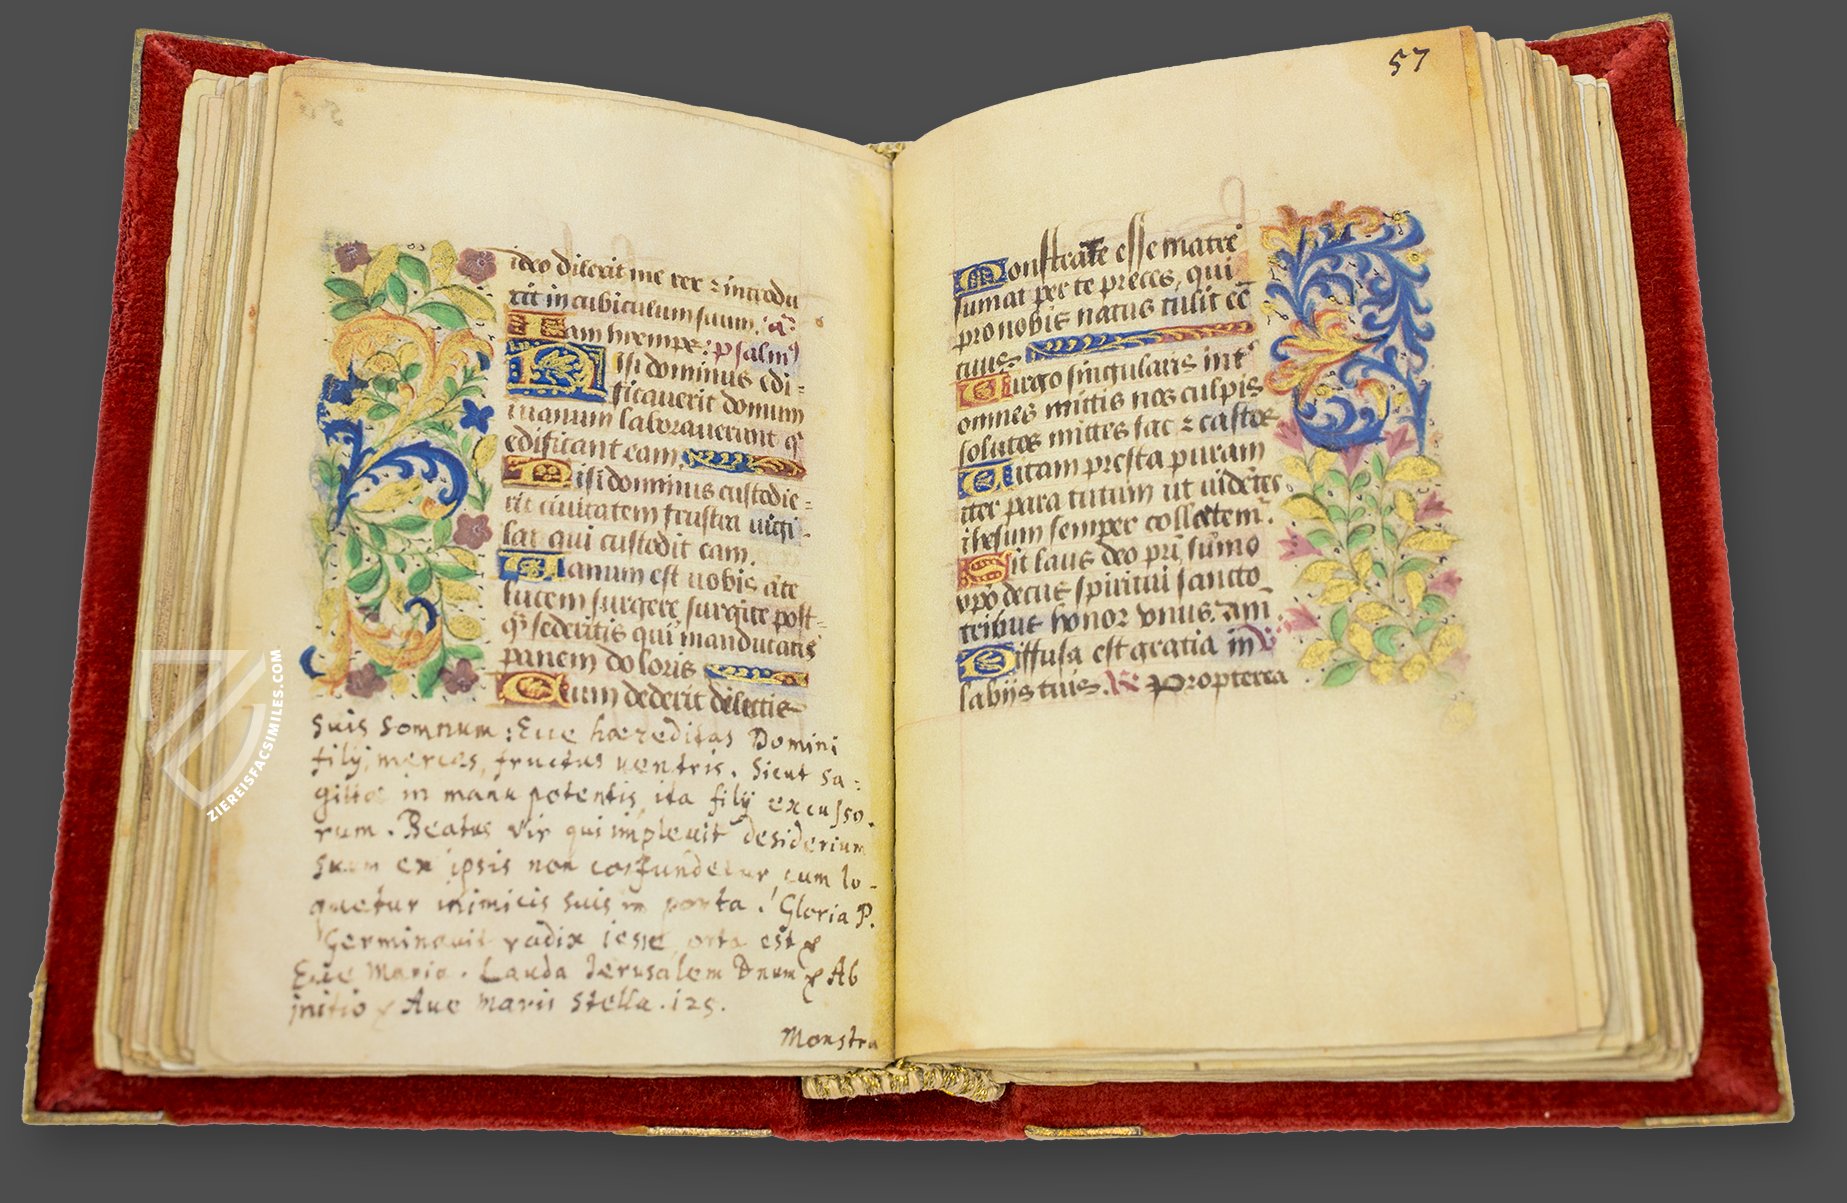 ideo dilexit me rex ⁊ introdu
xit in cubiculum suum. a͞
Iam hyemps: psalm⁹
Nisi dominus edi=
ficauerit domum
inanum laborauerunt q̄
edificant eam.
Nisi dominus custodie=
rit ciuitatem frustra uigi
lat qui custodit eam.
Uanum est uobis āte
lucem surgere, surgite post-
q̄ sederitis qui manducatis
panem doloris
Cum dederit dilectis
suis somnum: Ecce hæreditas Domini
filij, merces, fructus uentris. Sicut sa=
gittæ in manu potentis, ita filij excusso.
rum. Beatus Vir qui impleuit desiderium
suum ex ipsis non confundetur, cum lo-
quetur inimicis suis in porta. Gloria P.
Germinauit radix iesse, orta est &
Ecce Maria. Lauda Jerusalem Dnum & Ab
initio & Aue Maris stella. 125.
Monstra
57
Monstrate esse matrē
sumat per te preces, qui
pro nobis natus tulit eē
tuus
Uirgo singularis int͛
omnes mittis nos culpis
solutos mittes fac ⁊ castos
Uitam presta puram
iter para tutum ut uidētes
ihesum semper colletem͛.
Sit laus deo pr̄i sūmo
xpō decus spiritui sancto
tribus honor vnus. am̄
Diffusa est gratia in V
labijs tuis. R̃ Propterea
ZIEREISFACSIMILES.COM